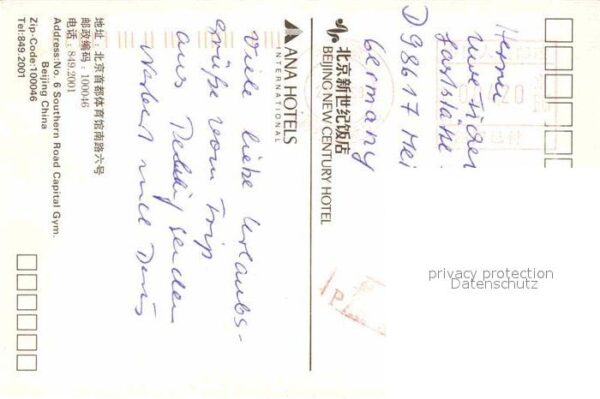 地址：北京首都体育馆南路六号
邮政编码：100046
电话：849.2001
Address:No. 6 Southern Road Capital Gym.
Beijing China
Zip-Code:100046
Tel:849.2001
Viele liebe Urlaubs-
grüße vom Trip
aus Peking senden
Norbert und Doris
ANA HOTELS
INTERNATIONAL
北京新世纪饭店
BEIJING NEW CENTURY HOTEL
Herrn
Uwe
D 98617 Mei
Germany
P
privacy protection
Datenschutz